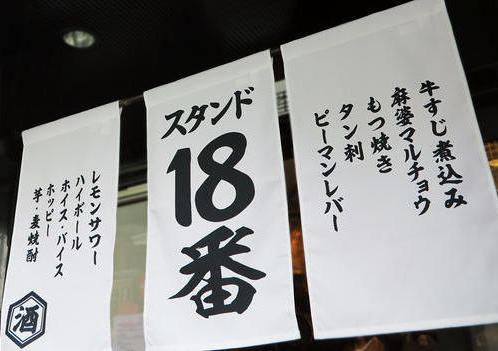 牛すじ煮込み
麻婆マルチョウ
もつ焼き
タン刺
ピーマンレバー
スタンド
18番
レモンサワー
ハイボール
ホイス・バイス
ホッピー
芋・麦焼酎
酒